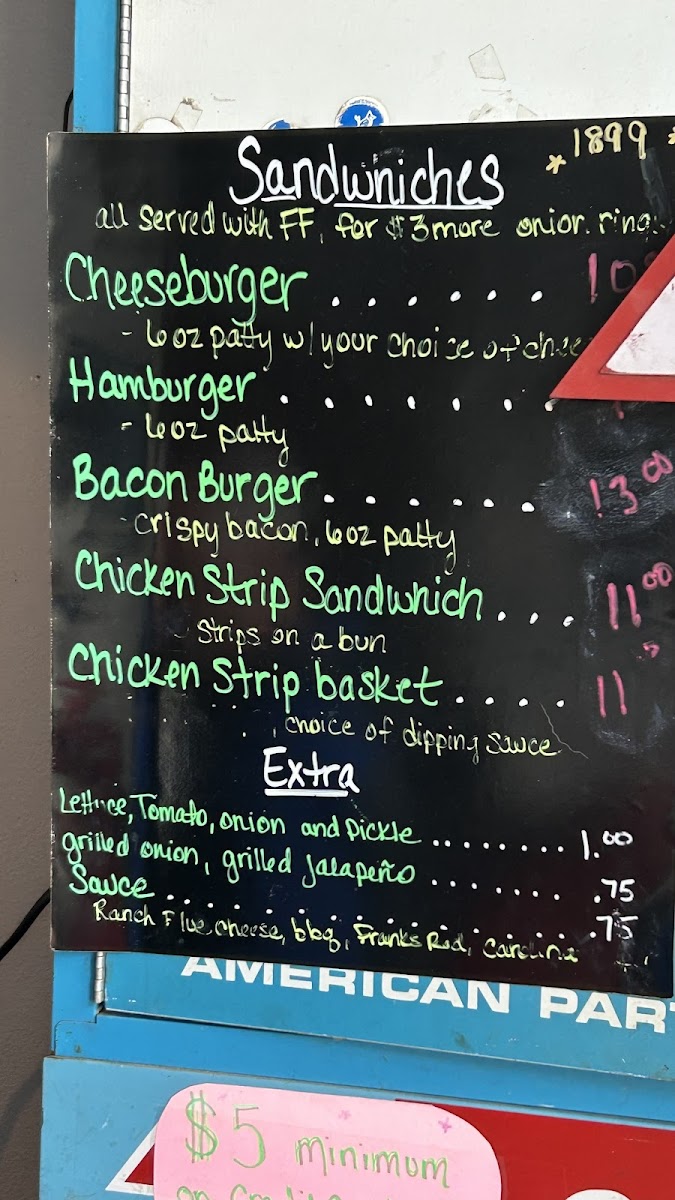 * 1899 *
Sandwniches
all served with FF, for $3 more onion rings
Cheeseburger . . . . . . 10
- 6oz patty w/ your choice of chee
Hamburger . . . . . . .
- 6oz patty
Bacon Burger. . . . . . . 13 00
- crispy bacon, 6oz patty
Chicken Strip Sandwnich . . . 11 00
Strips on a bun
Chicken Strip basket . . . . 11
choice of dipping sauce
Extra
Lettuce, Tomato, onion and pickle ........ 1.00
grilled onion, grilled Jalapeño ....... .75
Sauce .................. .75
Ranch, Blue cheese, bbq, Franks Red, Carolina
AMERICAN PAR
$5 minimum
on